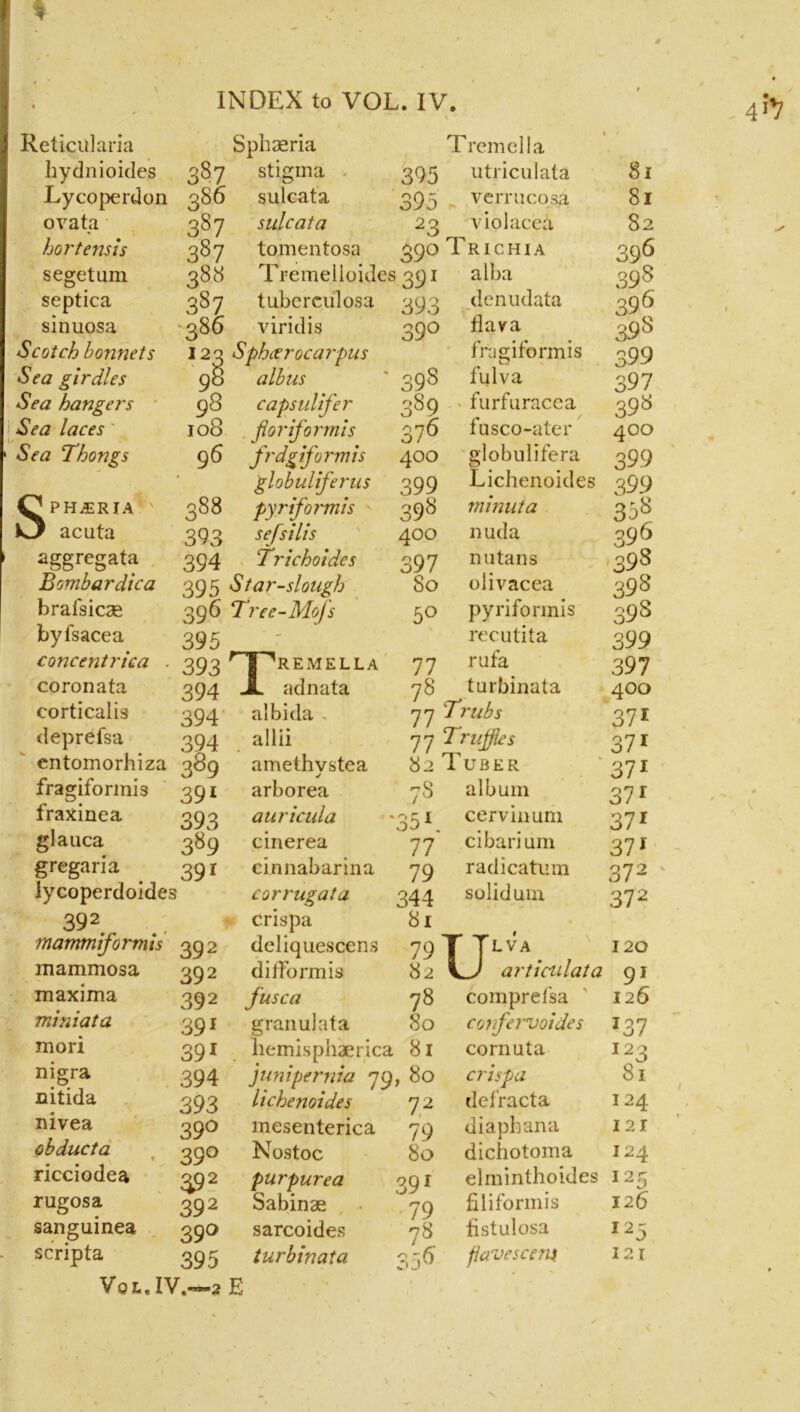 INDEX to VOL. IV.
417
Reticularia
hydnioides 387
Lycoperdon 386
ovata 387
hortensis 387
segetum 388
septica 387
sinuosa 386
Scotch bonnets 123
Sea girdles 98
Sea hangers 98
Sea laces 108
Sea Thongs 96
SPHÆRIA 388
acuta 393
aggregata 394
Bombardica 395
brafsicæ 396
byfsacea 395
concentrica 393
coronata 394
corticalis 394
deprefsa 394
entomorhiza 389
fragiformis 391
fraxinea 393
glauca 389
gregaria 391
lycoperdoides
392
mammiformis 392
mammosa 392
maxima 392
miniata 391
mori 391
nigra 394
nitida 393
nivea 390
obducta 390
ricciodea 392
rugosa 392
sanguinea 390
scripta 395
Sphæria
stigma 395
sulcata 395
sulcata 23
tomentosa 390
Tremelloides 391
tuberculosa 393
viridis 390
Sphærocarpus
albus 398
capsulifer 389
floriformis 376
frdgiformis 400
globuliferus 399
pyriformis 398
sefsilis 400
Trichoides 397
Star-slough 80
Tree-Mofs 50
TREMELLA 77
adnata 78
albida 77
allii 77
amethystea 82
arborea 78
auricula 351
cinerea 77
cinnabarina 79
corrugata 344
crispa 81
deliquescens 79
difformis 82
fusca 78
granulata 80
hemisphærica 81
junipernia 79, 80
lichenoides 72
mesenterica 79
Nostoc 80
purpurea 391
Sabinæ 79
sarcoides 78
turbinata 356
Tremella
utriculata 81
verrucosa 81
violacea 82
TRICHIA 396
alba 398
denudata 396
flava 398
fragiformis 399
fulva 397
furfuracea 398
fusco-ater 400
globulifera 399
Lichenoides 399
minuta 358
nuda 396
nutans 398
olivacea 398
pyriformis 398
recutita 399
rufa 397
turbinata 400
Trubs 371
Truffles 371
TUBER 371
album 371
cervinum 371
cibarium 371
radicatum 372
solidum 372
ULVA 120
articulata 91
comprefsa 126
confervoides 137
cornuta 123
crispa 81
defracta 124
diaphana 121
dichotoma 124
elminthoides 125
filiformis 126
fistulosa 125
flavescens 121
VOL. IV.—2 E